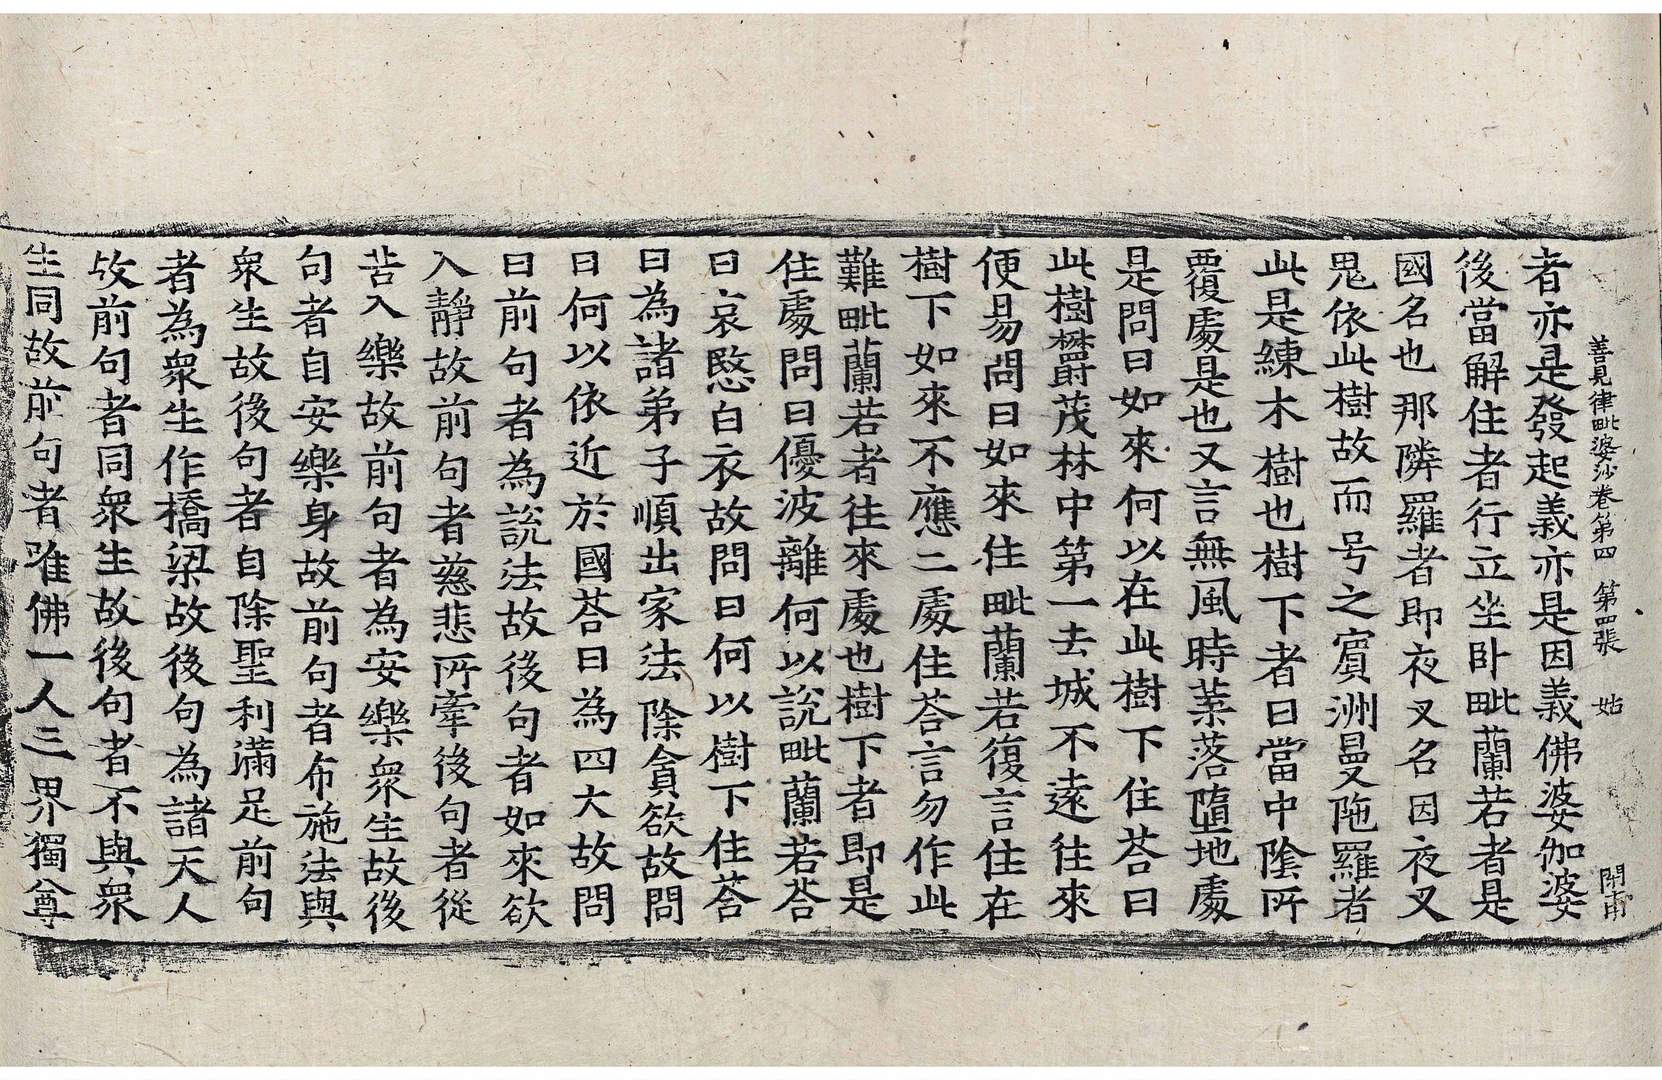 善見律毗婆沙卷第四　第四張　姑　開甫
者亦是發起義亦是因義佛婆伽婆
後當解住者行立坐卧毗蘭若者是
國名也那隣羅者即夜叉名因夜叉
鬼依此樹故而号之賔洲曼陁羅者
此是練木樹也樹下者曰當中陰所
覆處是也又言無風時葉落墮地處
是問曰如來何以在此樹下住荅曰
此樹欝茂林中第一去城不遠往來
便易問曰如來住毗蘭若復言住在
樹下如來不應二處住荅言勿作此
難毗蘭若者往來處也樹下者即是
住處問曰優波離何以說毗蘭若荅
曰哀愍白衣故問曰何以樹下住荅
曰為諸弟子順出家法除貪欲故問
曰何以依近於國荅曰為四大故問
曰前句者為說法故後句者如來欲
入靜故前句者慈悲所牽後句者從
苦入樂故前句者為安樂衆生故後
句者自安樂身故前句者布施法與
衆生故後句者自除聖利滿足前句
者為衆生作橋梁故後句為諸天人
故前句者同衆生故後句者不與衆
生同故前句者唯佛一人三界獨尊